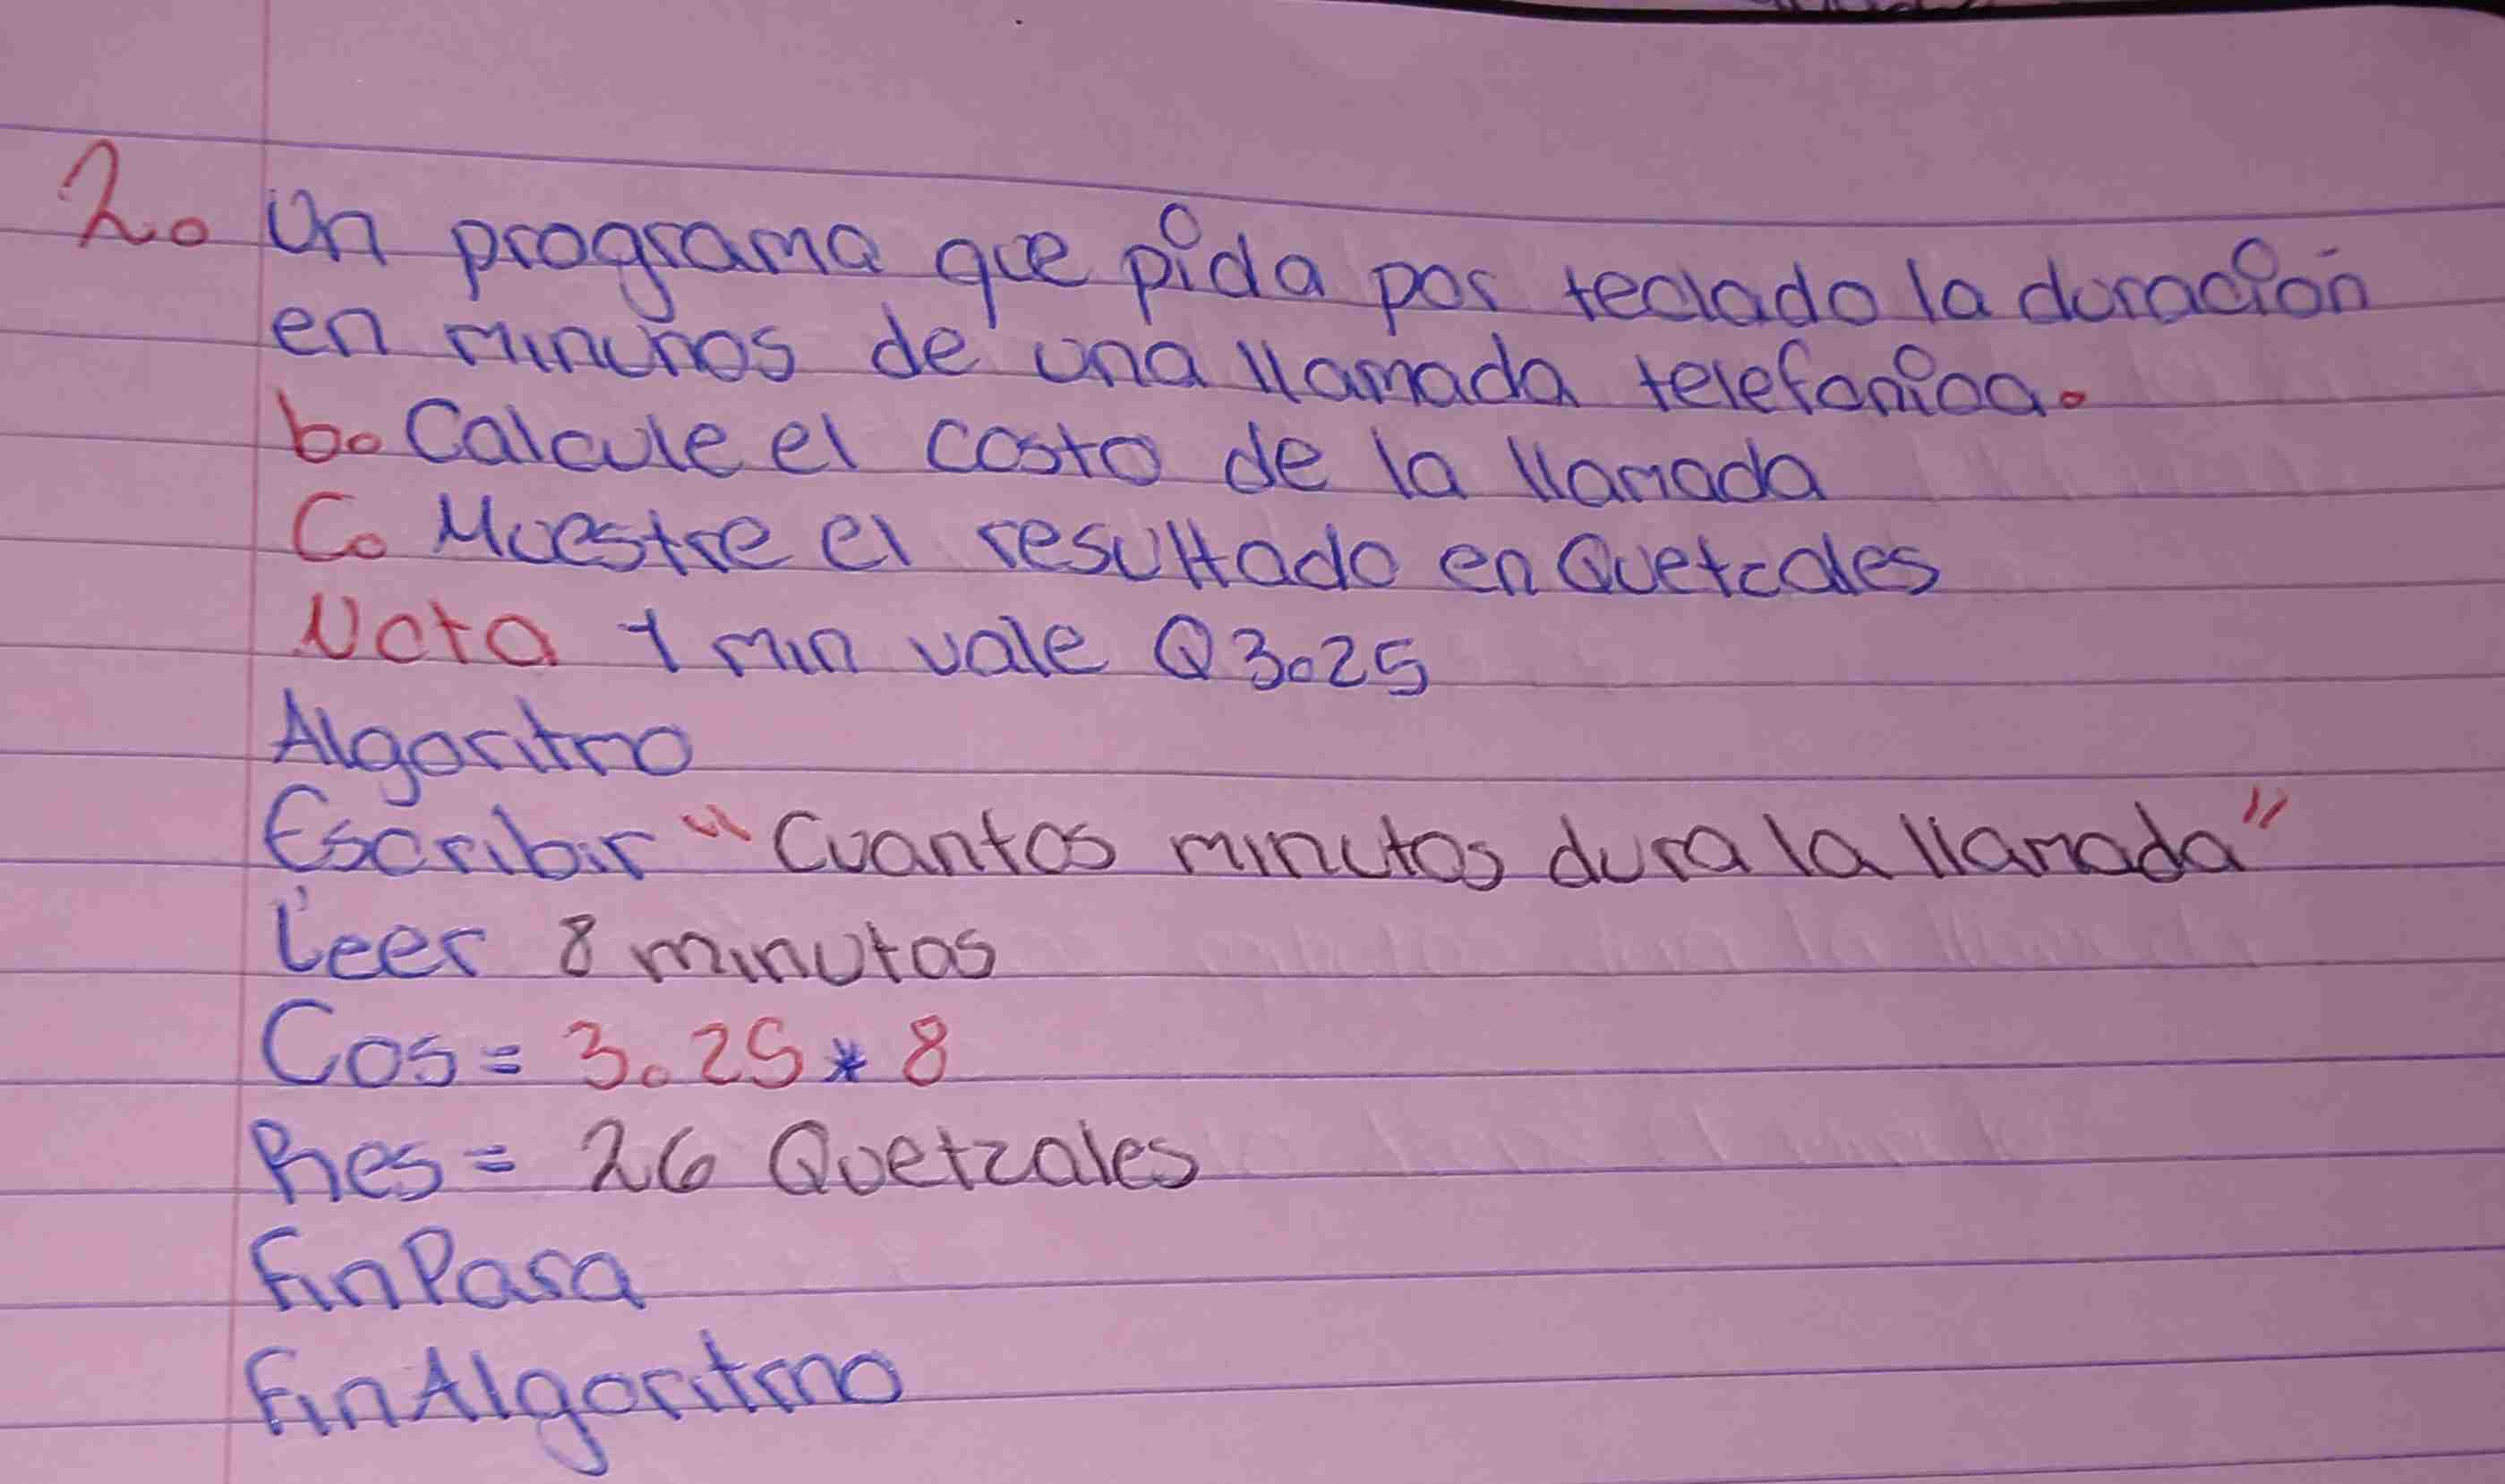 2. Un programa que pida por teclado la duración
en minunos de una llamada telefonica.
b. Calcule el costo de la llamada
C. Muestre el resultado en Quetzales
Nota 1 min vale Q3.25
Algoritmo
Escribir "Cuantos minutos dura la llamada"
Leer 8 minutos
Cos = 3.25 * 8
Res = 26 Quetzales
FinPara
FinAlgoritmo